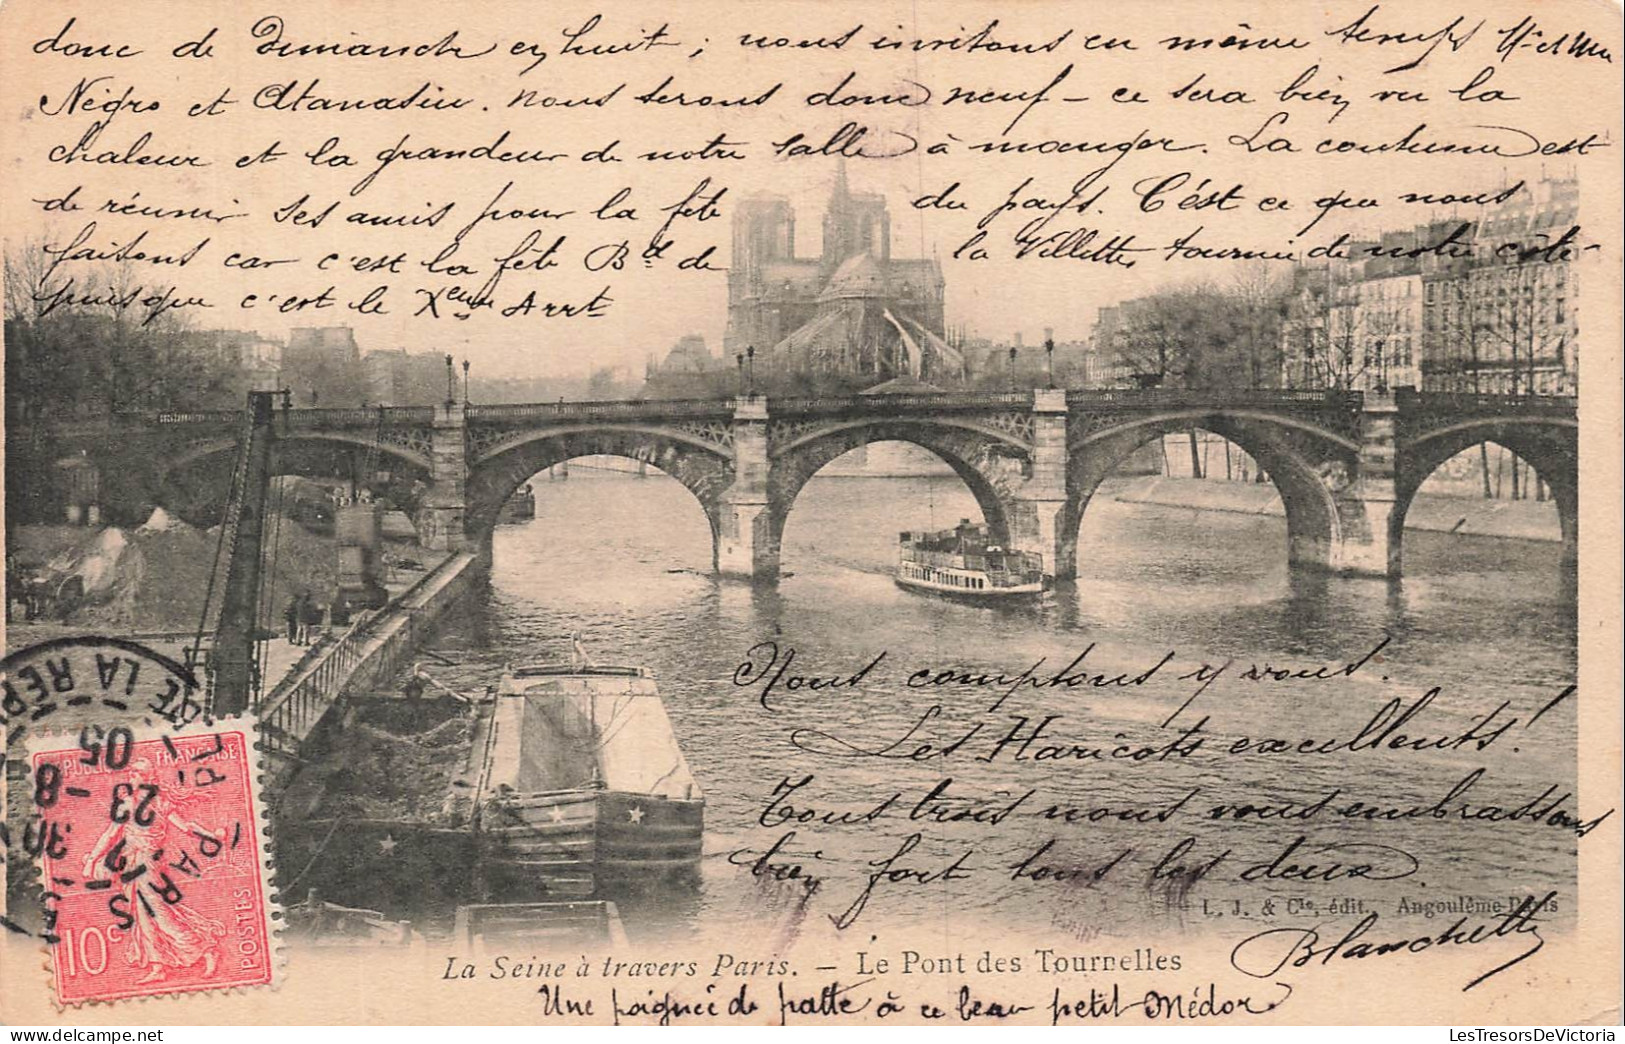 donc de Dimanche en huit ; nous invitons en même temps Mr et Mme
Négro et Atanasiu. Nous serons donc neuf - ce sera bien vu la
chaleur et la grandeur de notre salle à manger. La coutume est
de réunir ses amis pour la fête du pays. C'est ce que nous
faisons car c'est la fête Bd de la Villette, tournie de notre côté
puisque c'est le Xeme Arrt
Nous comptons y vous.
Les Haricots excellents!
Tous trois nous vous embrassons
bien fort tous les deux.
L. J. & Cie, édit. Angoulême-Paris
Blanchette
La Seine à travers Paris. — Le Pont des Tournelles
Une poignée de patte à ce beau petit Médor
PARIS
PL. DE LA RÉP
23
8
05
FRANÇAISE
POSTES
10c
LesTresorsDeVictoria